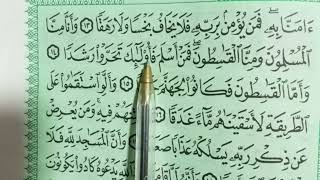 ءَامَنَّا بِهِۦ ۖ فَمَن يُؤْمِنۢ بِرَبِّهِۦ فَلَا يَخَافُ بَخْسًا وَلَا رَهَقًا ۝١٣ وَأَنَّا مِنَّا
ٱلْمُسْلِمُونَ وَمِنَّا ٱلْقَٰسِطُونَ ۖ فَمَنْ أَسْلَمَ فَأُو۟لَٰٓئِكَ تَحَرَّوْا۟ رَشَدًا ۝١٤
وَأَمَّا ٱلْقَٰسِطُونَ فَكَانُوا۟ لِجَهَنَّمَ ۝١٥ وَأَلَّوِ ٱسْتَقَٰمُوا۟ عَلَى
ٱلطَّرِيقَةِ لَأَسْقَيْنَٰهُم مَّآءً غَدَقًا ۝١٦ وَمَن يُعْرِضْ
عَن ذِكْرِ رَبِّهِۦ يَسْلُكْهُ عَذَابًا وَأَنَّ ٱلْمَسَٰجِدَ لِلَّهِ فَلَا
يَدْعُوهُ كَادُوا۟ يَكُونُونَ